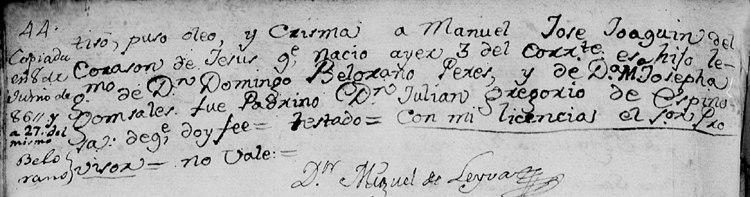 44.
Copiada
en 8 de
Junio de
8611 y
a 27. del
mismo
Belg
rano
tisó, puso óleo, y Crisma a Manuel Jose Joaquin del
Corason de Jesus qe. nacio ayer 3 del Corrte. es hijo le-
gmo. de Dn. Domingo Belgrano Peres, y de Da. M. Josepha
Gonsales. fue Padrino Dn. Julian Gregorio de Espino-
sa: de qe. doy fee = testado = con mi licencias el sor. Pro
visor = no vale: =
Dor. Miguel de Leyva